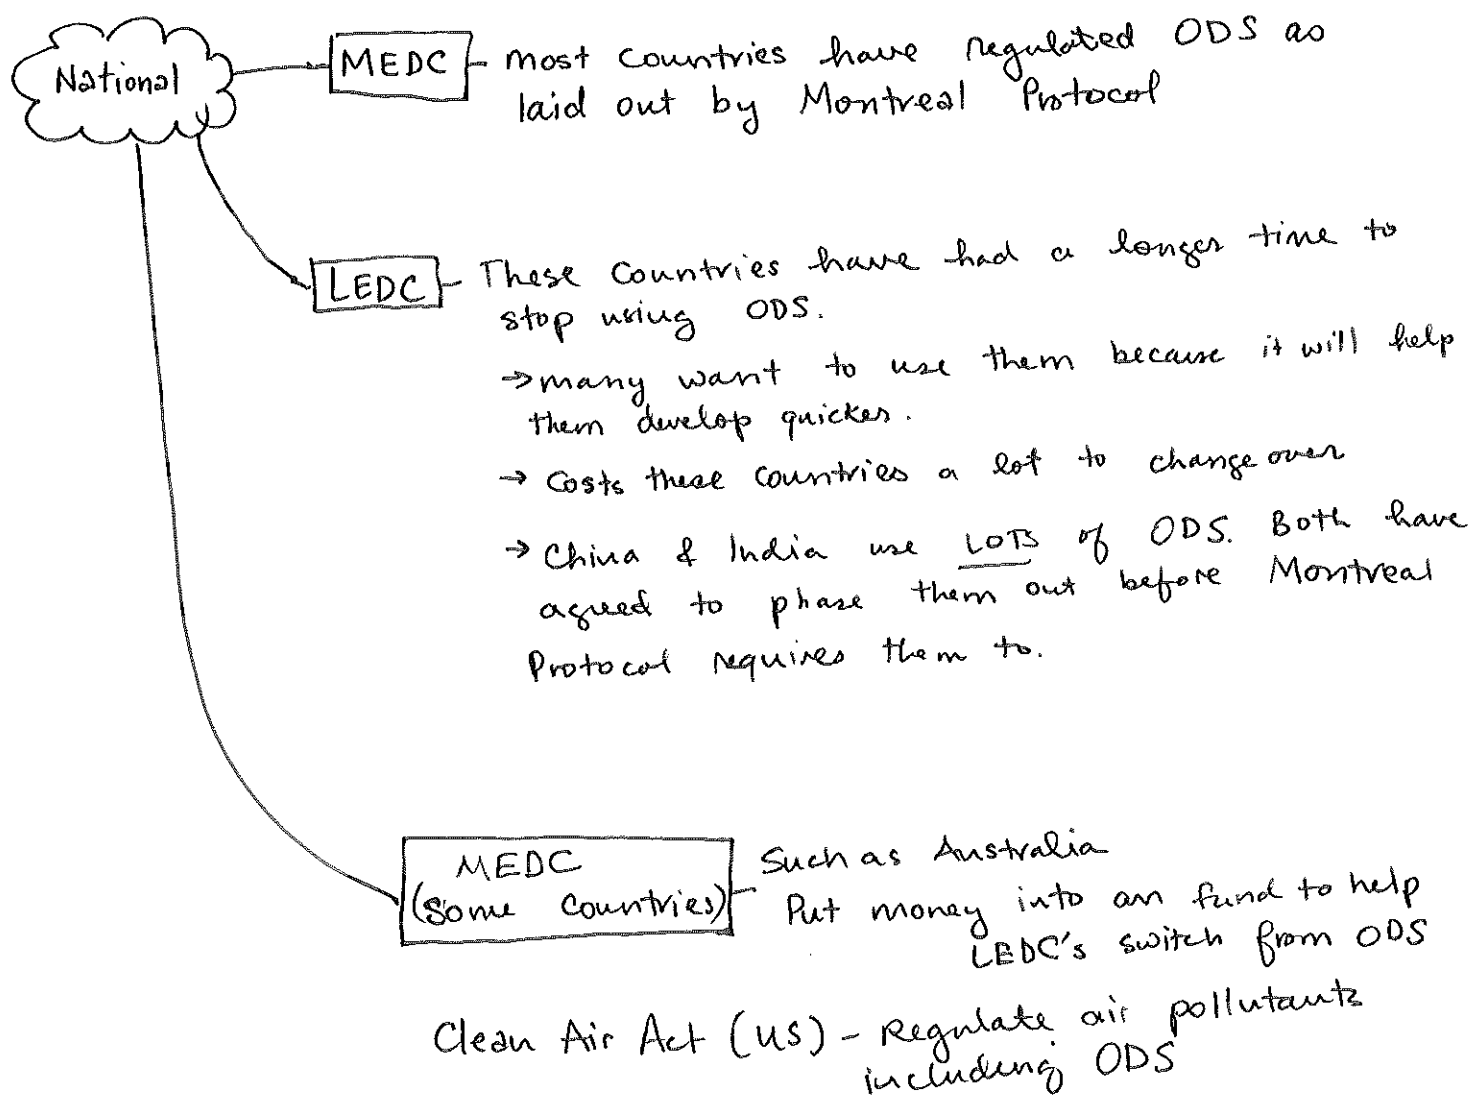 National
MEDC - most countries have regulated ODS as
laid out by Montreal Protocol
LEDC - These countries have had a longer time to
stop using ODS.
→ many want to use them because it will help
them develop quicker.
→ Costs these countries a lot to change over
→ China & India use LOTS of ODS. Both have
agreed to phase them out before Montreal
Protocol requires them to.
MEDC
(some countries) - Such as Australia
Put money into an fund to help
LEDC's switch from ODS
Clean Air Act (US) - Regulate air pollutants
including ODS